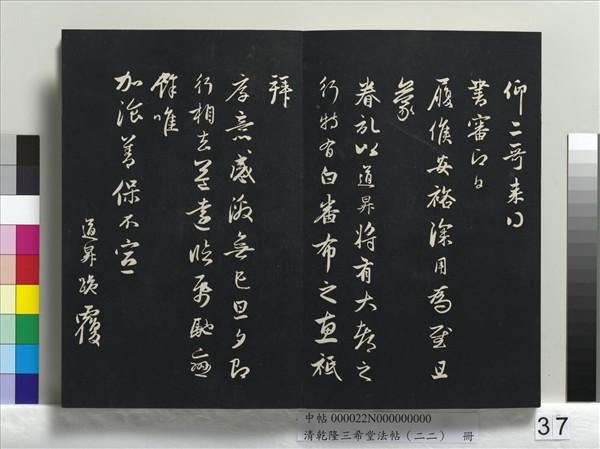 仰二哥来得
書審即日
履候安裕深用為慰且
蒙
眷記以道昇將有大都之
行特有白番布之惠祗
拜
厚意感激無已旦夕即
行相去益遠臨馳戀
餘唯
加飡善保不宣
道昇跪覆
中帖 000022N000000000
清乾隆三希堂法帖(二二) 冊
37